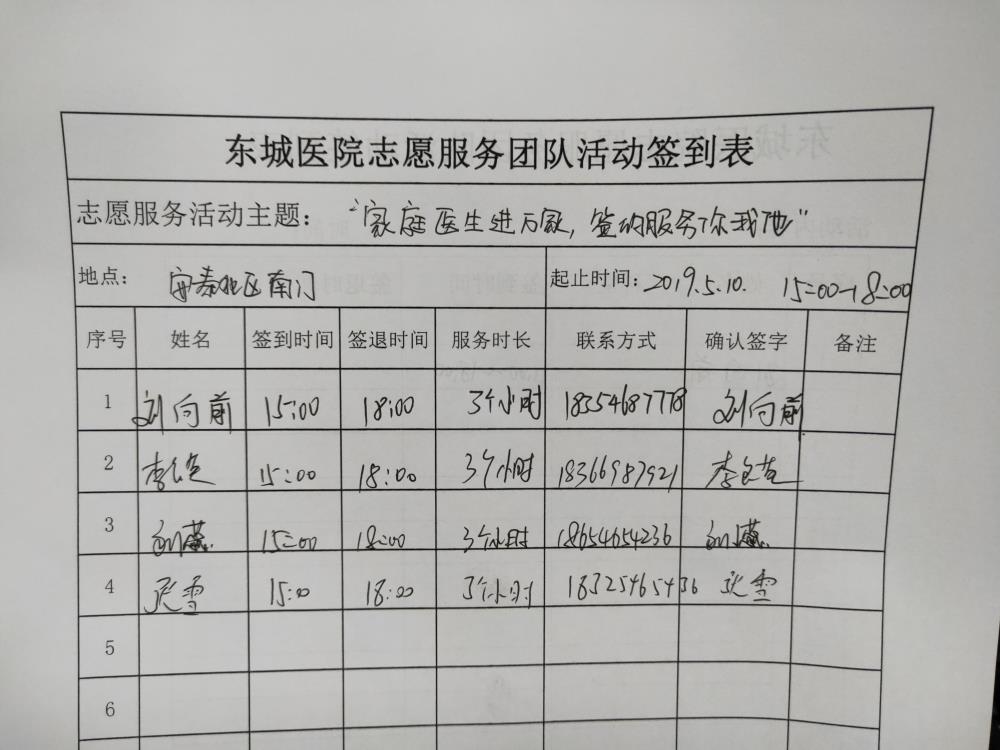 东城医院志愿服务团队活动签到表
志愿服务活动主题："家庭医生进万家,签约服务你我他"
地点: 安泰社区南门 起止时间: 2019.5.10. 15:00-18:00
序号 姓名 签到时间 签退时间 服务时长 联系方式 确认签字 备注
1 刘向前 15:00 18:00 3个小时 18554687778 刘向前
2 李 15:00 18:00 3个小时 18366987921 李
3 刘 15:00 18:00 3个小时 18654654236 刘
4 张雪 15:00 18:00 3个小时 18325465436 张雪
5
6